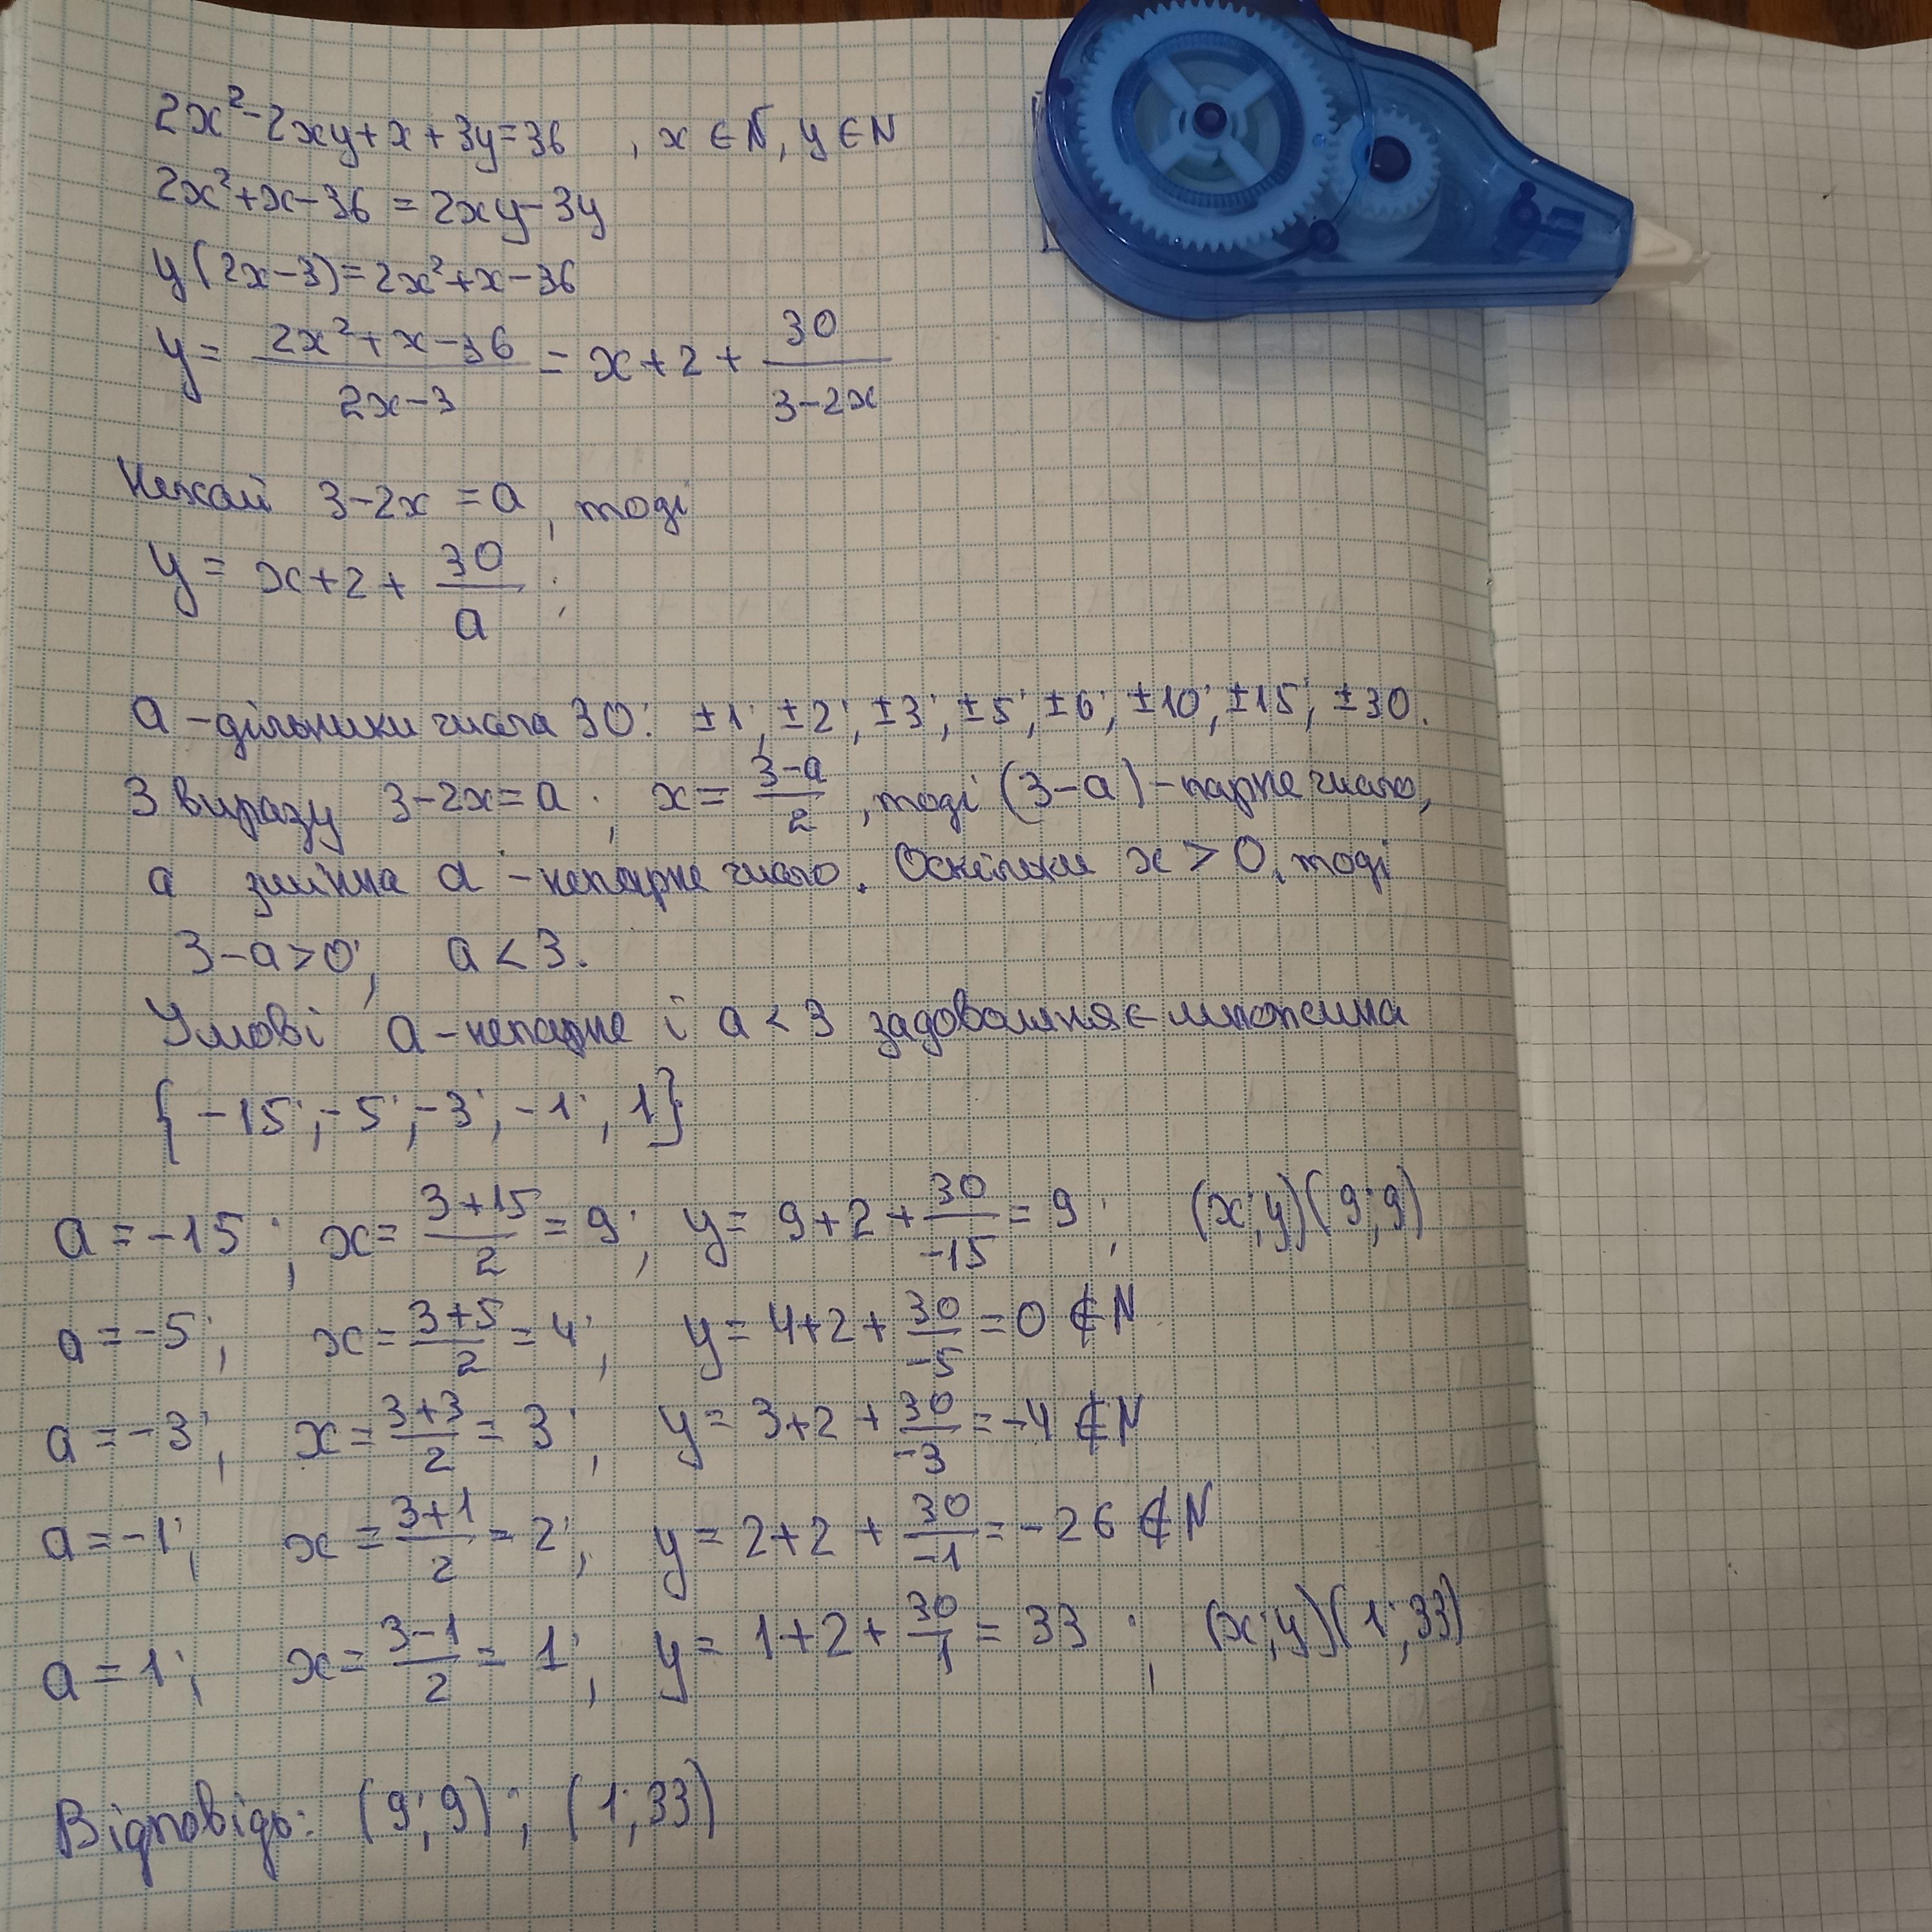 2x²-2xy+x+3y=36 , x ∈ N, y ∈ N
2x²+x-36 = 2xy-3y
y(2x-3)=2x²+x-36
y = (2x²+x-36)/(2x-3) = x+2+ 30/(3-2x)
Нехай 3-2x = a, тоді
y = x+2+ 30/a ;
a - дільники числа 30: ±1; ±2; ±3; ±5; ±6; ±10; ±15; ±30.
З виразу 3-2x=a ; x = (3-a)/2 , тоді (3-a) - парне число,
а змінна a - непарне число. Оскільки x > 0, тоді
3-a>0; a < 3.
Умові a - непарне і a < 3 задовольняє множина
{ -15; -5; -3; -1; 1}
a = -15 ; x = (3+15)/2 = 9; y = 9+2+ 30/-15 = 9 ; (x;y)(9;9)
a = -5; x = (3+5)/2 = 4; y = 4+2+ 30/-5 = 0 ∉ N
a = -3; x = (3+3)/2 = 3; y = 3+2 + 30/-3 = -4 ∉ N
a = -1; x = (3+1)/2 = 2; y = 2+2 + 30/-1 = -26 ∉ N
a = 1; x = (3-1)/2 = 1; y = 1+2+ 30/1 = 33 ; (x;y)(1;33)
Відповідь: (9;9) ; (1;33)